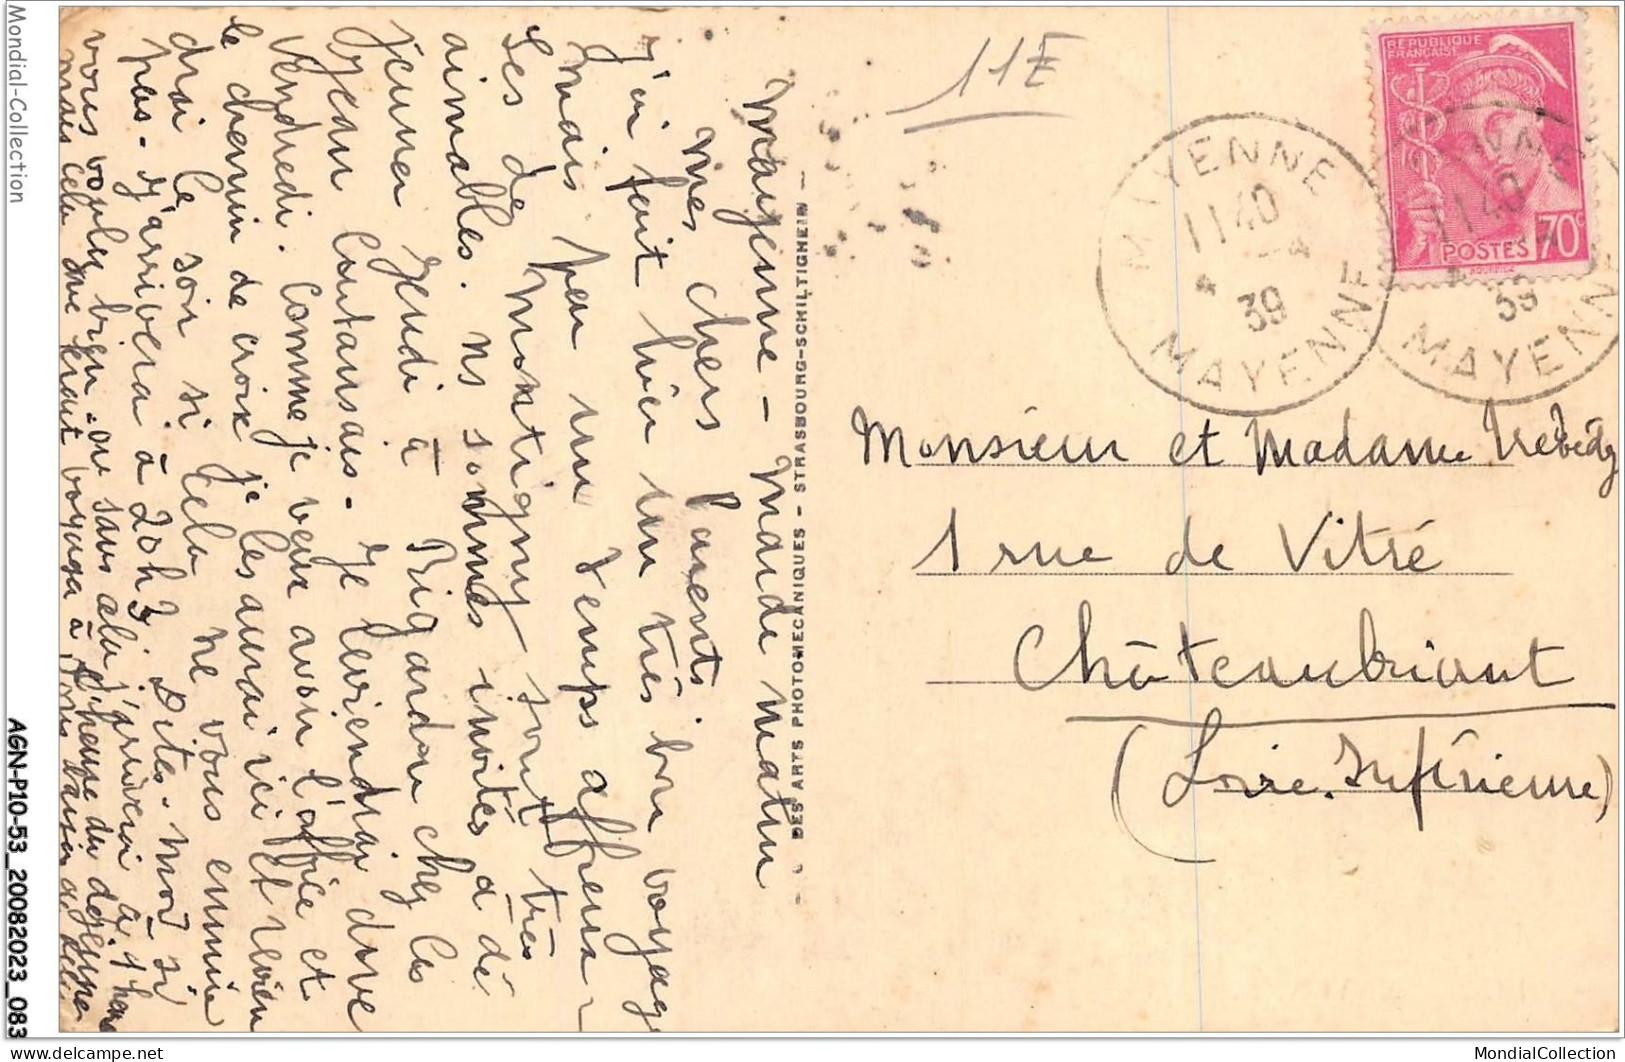 Mayenne - Mardi matin
Mes chers Parents.
J'ai fait hier un très bon voyage
mais par un temps affreux -
Les de Montigny sont très
aimables. ns sommes invités à dé
jeuner Jeudi à chez les
Jean Coutansais - Je reviendrai dove
Vendredi. Comme je veux avoir l'après et
le chemin de croix je les aurai ici et revien
drai le soir si cela ne vous ennuie
pas - J'arriverai à 20h Dites-moi si
vous voulez bien - ou sans cela j'arriverai à 1 heure
mais cela me ferait voyager à l'heure du déjeuner
11E
MAYENNE
11 40
4 - 4
39
MAYENNE
REPUBLIQUE
FRANÇAISE
POSTES 70c
MAYENNE
11 40
39
MAYENNE
Monsieur et Madame
1 rue de Vitré
Châteaubriant
(Loire-Inférieure)
DES ARTS PHOTOMECANIQUES - STRASBOURG-SCHILTIGHEIM -
Mondial-Collection
AGN-P10-53_20082023_083
MondialCollection